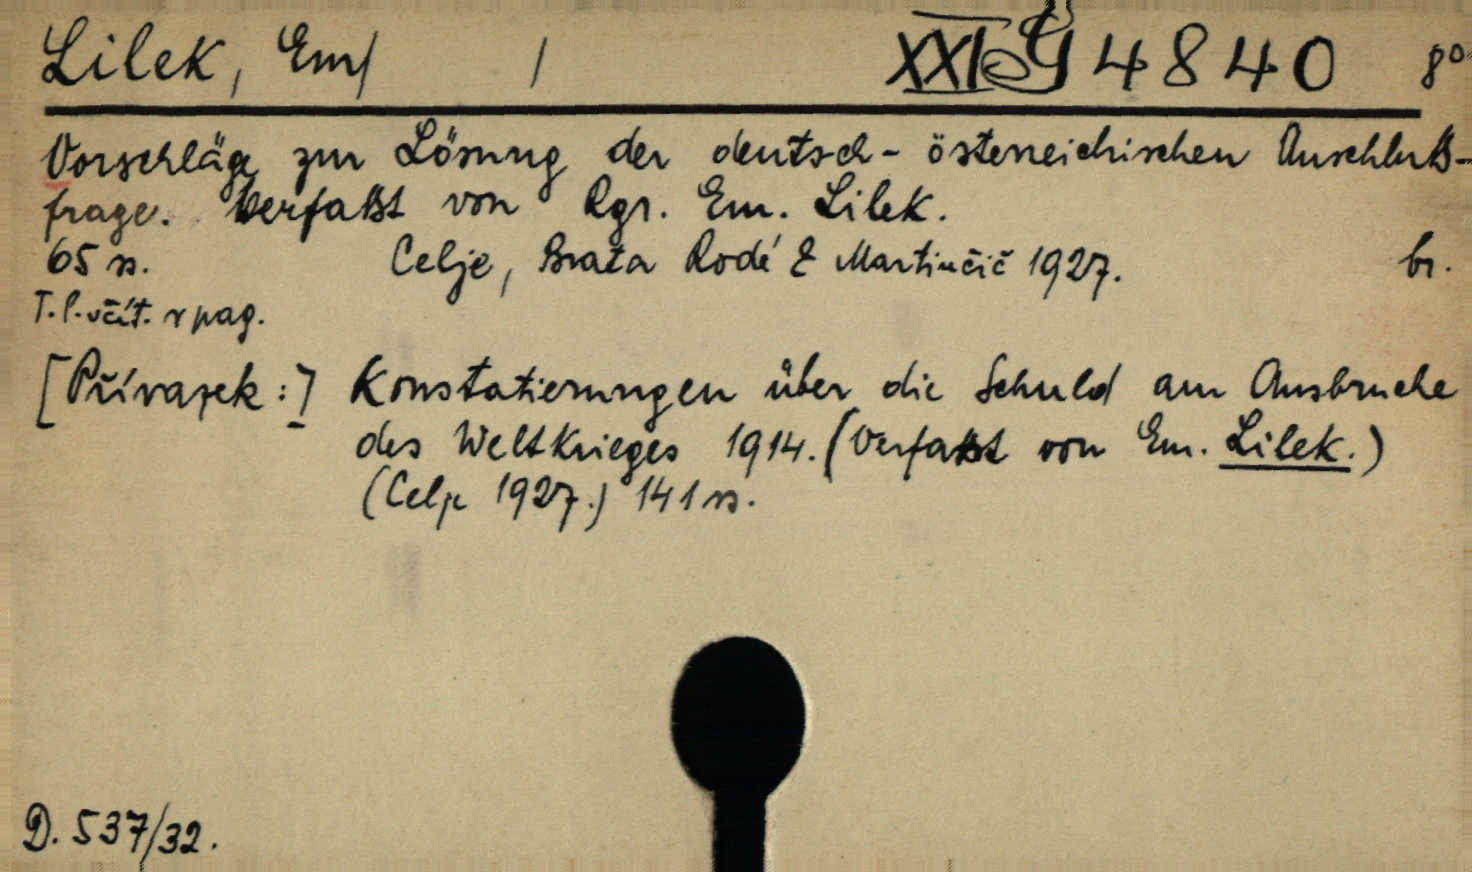 Lilek, Em/ / 4840 8°
Vorschläge zur Lösung der deutsch-österreichischen Anschluß-
frage. Verfaßt von Rgr. Em. Lilek.
65 s. Celje, Brata Rode & Martinčič 1927. br.
T. l. včít. v pag.
[Přívazek:] Konstatierungen über die Schuld am Ausbruche
des Weltkrieges 1914. (Verfaßt von Em. Lilek.)
(Celje 1927.) 141 s.
D. 537/32.